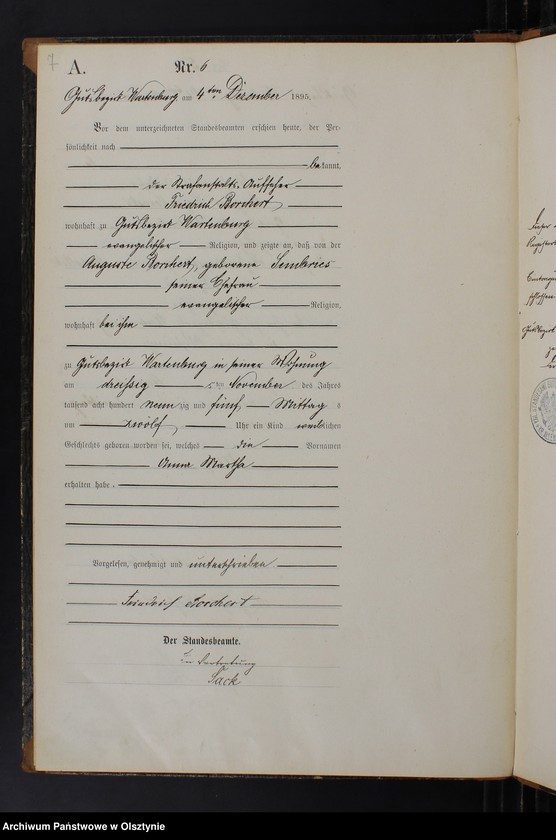 7
A.
Nr. 6
Gutsbezirk Wartenburg am 4ten Dezember 1895.
Vor dem unterzeichneten Standesbeamten erschien heute, der Per-
sönlichkeit nach
bekannt,
der Strafanstalts-Aufseher
Friedrich Borchert
wohnhaft zu Gutsbezirk Wartenburg
evangelischer Religion, und zeigte an, daß von der
Auguste Borchert, geborene
seiner Ehefrau
evangelischer Religion,
wohnhaft bei ihm
zu Gutsbezirk Wartenburg in seiner Wohnung
am dreißig sten November des Jahres
tausend acht hundert neunzig und fünf Mittags
um zwölf Uhr ein Kind weiblichen
Geschlechts geboren worden sei, welches die Vornamen
Anna Martha
erhalten habe.
Vorgelesen, genehmigt und unterschrieben
Friedrich Borchert
Der Standesbeamte.
In Vertretung
Sack
Archiwum Państwowe w Olsztynie